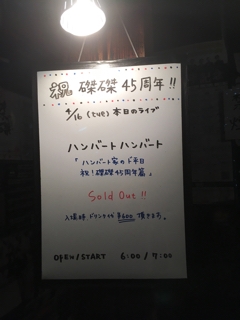 祝 磔磔 45周年!!
4/16 (tue) 本日のライブ
ハンバート ハンバート
「ハンバート家のド平日
祝!磔磔45周年篇」
Sold Out!!
入場時ドリンク代¥600頂きます。
OPEN/START 6:00/7:00